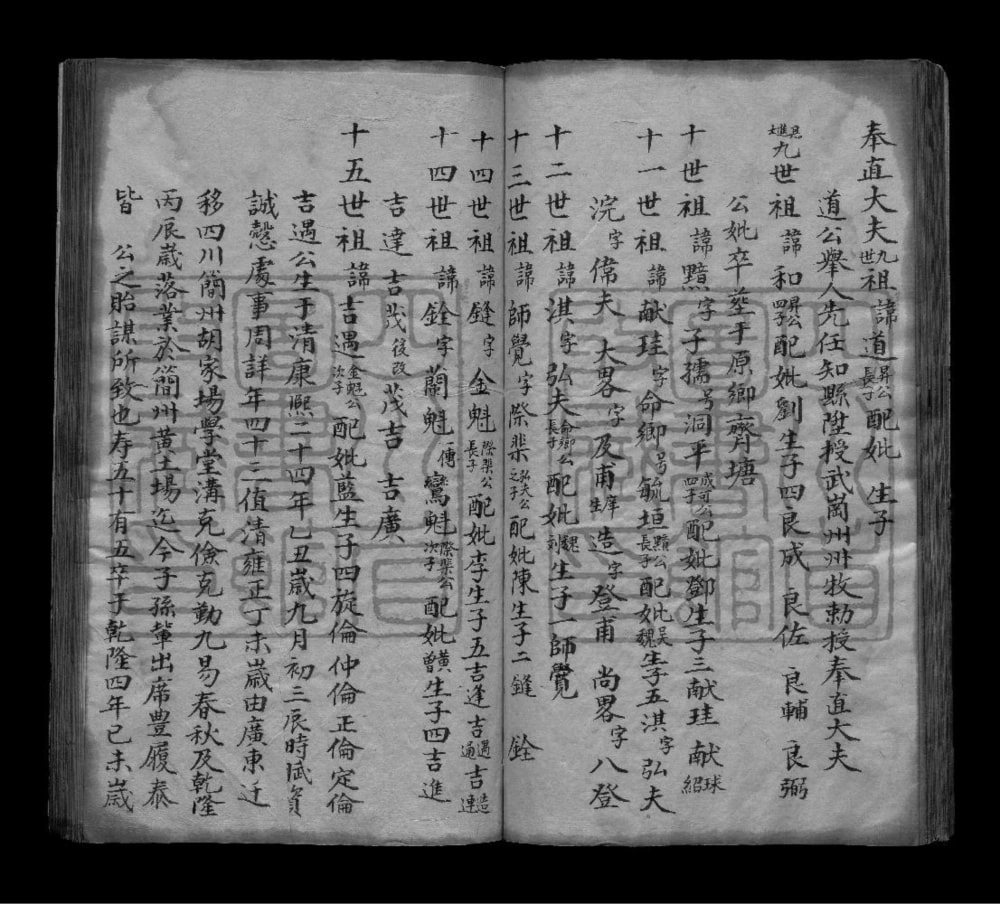 奉直大夫九世祖諱道昇公長子配妣 生子
道公舉人先任知縣陞授武崗州州牧勅授奉直大夫
九世祖諱和昇公四子配妣劉生子四良成 良佐 良輔 良弼
公妣卒塟于原鄉齊塘
十世祖諱黯字子孺号洞平成可公四子配妣鄧生子三献珪 献球 紹
十一世祖諱献珪字命鄉号毓垣黯公長子配妣吴魏生子五淇字弘夫
浣字偉夫 大畧字及甫庠生 造字登甫 尚畧字八登
十二世祖諱淇字弘夫命鄉公長子配妣魏刘生子一師覺
十三世祖諱師覺字際渠弘夫公之子配妣陳生子二鏠 銓
十四世祖諱鏠字金魁際渠公長子配妣李生子五吉逢吉遇通吉造連
十四世祖諱銓字蘭魁一傳鸞魁際渠公次子配妣黄曾生子四吉進
吉達 吉茂後改茂吉 吉廣
十五世祖諱吉遇金魁公次子配妣藍生子四旋倫 仲倫正倫定倫
吉遇公生于清康熙二十四年乙丑嵗九月初三辰時賦質
誠慤處事周詳年四十三值清雍正丁未嵗由廣東迁
移四川簡州胡家塲學堂溝克儉克勤九易春秋及乾隆
丙辰嵗落業於簡州黄土塲迄今子孫軰出席豊履泰
皆 公之貽謀所致也寿五十有五卒于乾隆四年已未嵗